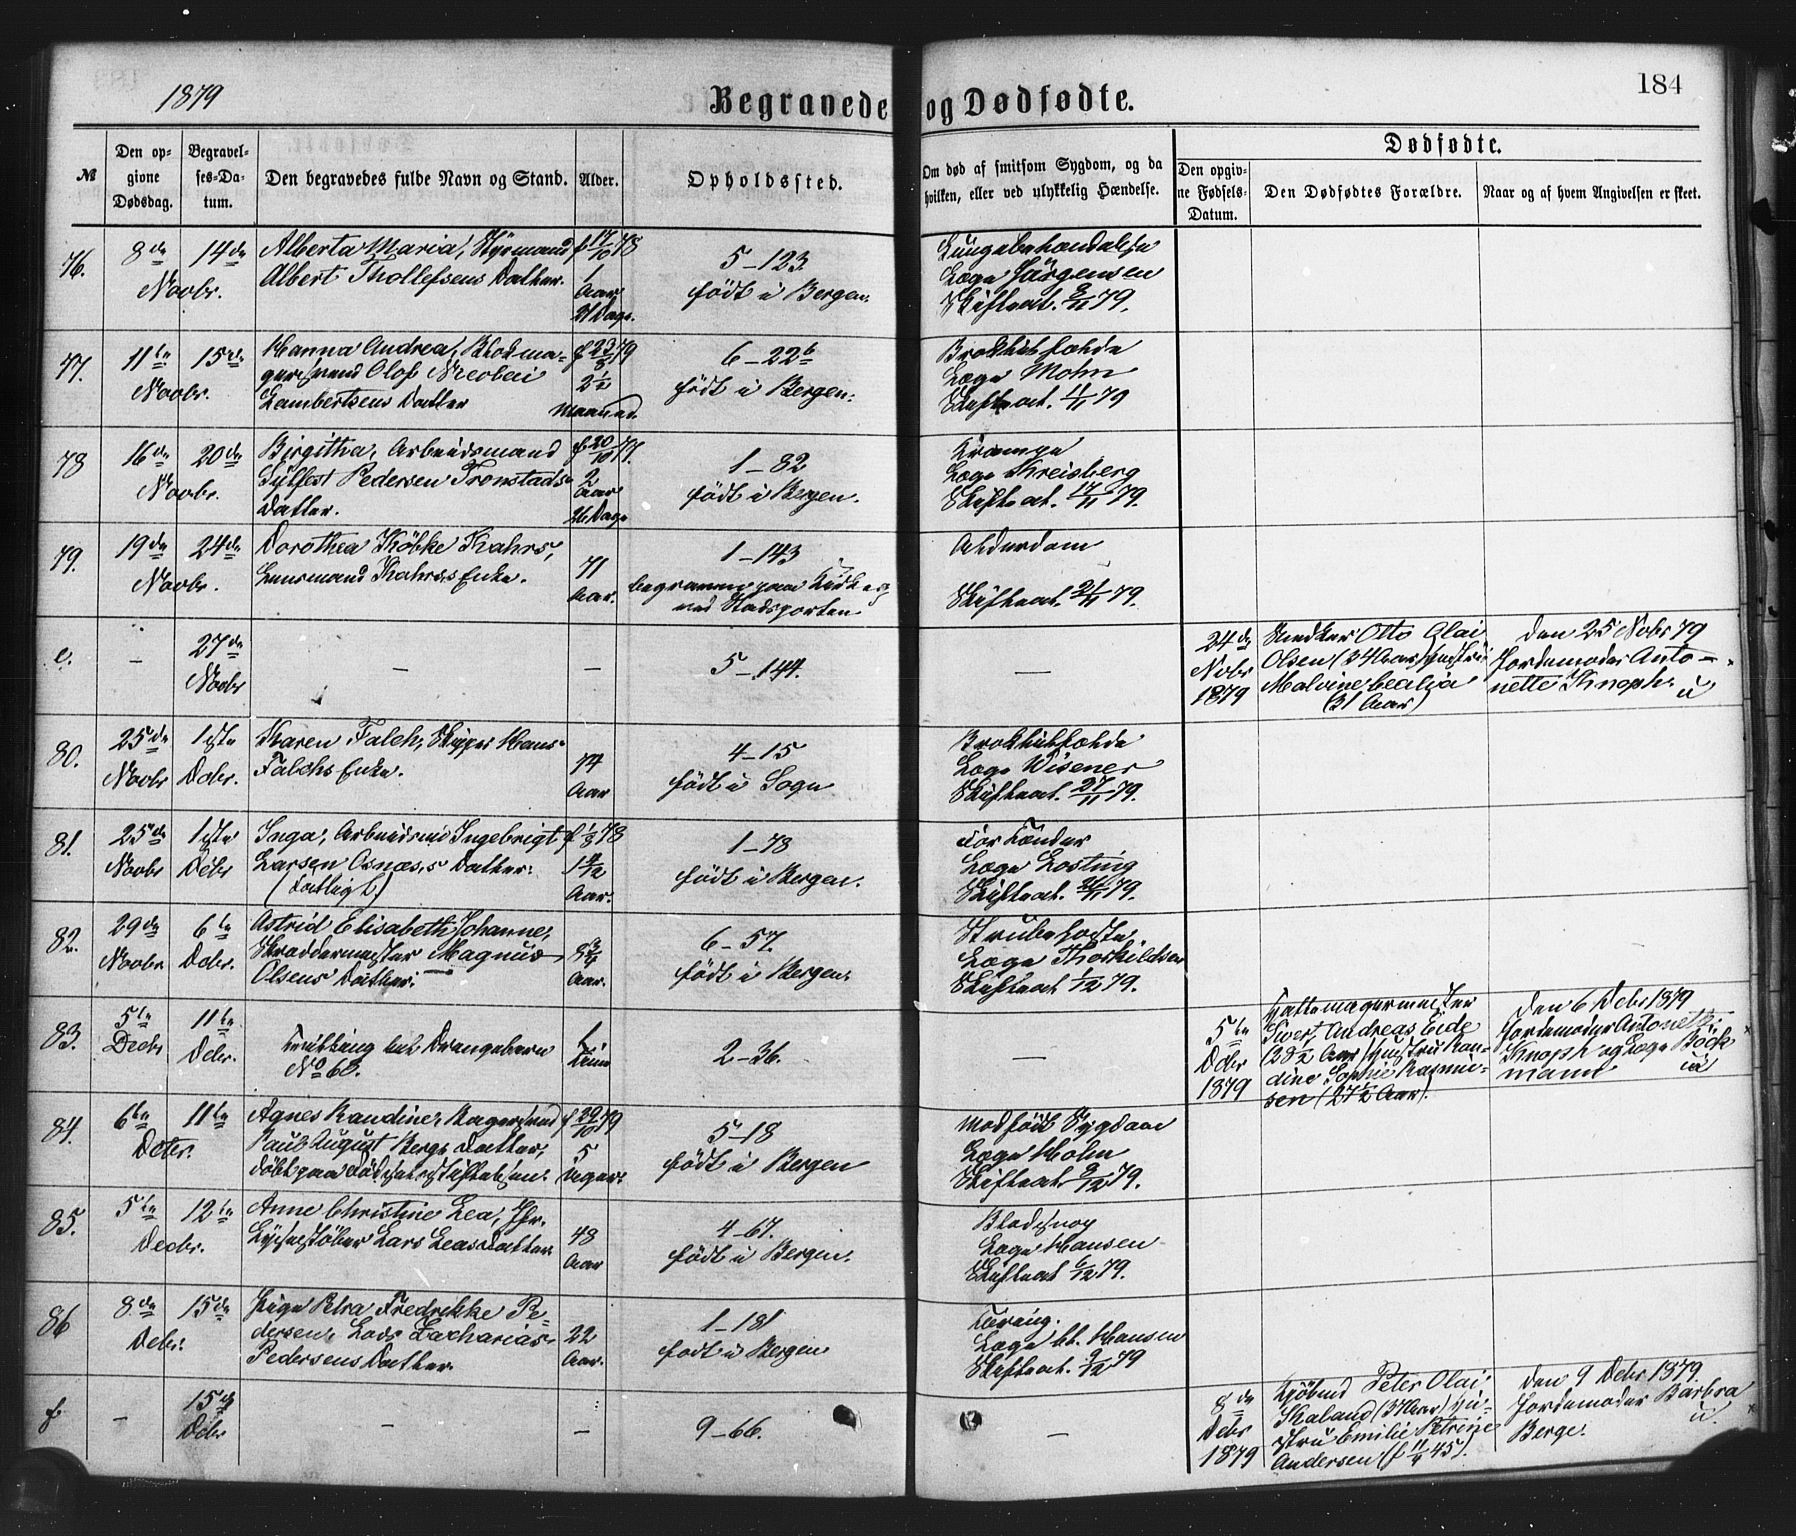 1879
Begravede og Dødfødte.
184
№
Den opgivne Dødsdag.
Begravelses-Datum.
Den begravedes fulde Navn og Stand.
Alder.
Opholdssted.
Om død af smitsom Sygdom, og da
hvilken, eller ved ulykkelig Hændelse.
Dødfødte.
Den opgivne Fødsels-Datum.
Den Dødfødtes Forældre.
Naar og af hvem Angivelsen er skeet.
76.
8de Novbr.
14de
Alberta Maria, Styrmand
Albert Thollefsens Datter.
f 17/10 78
1 Aar 21 Dage.
5–123.
født i Bergen.
Lungebetændelse
Læge Jörgensen
Skifteat. 9/11 79.
77.
11te Novbr.
15de
Hanna Andrea, Blokma-
gersvend Olof Nicolai
Lambertsens Datter
f 23/8 79
2 1/2 Maaned.
6–22b
født i Bergen.
Læge Mohn
Skifteat. 11/11 79
78
16de Novbr.
20de
Birgitha, Arbeidsmand
Sylfest Pedersen Tronstads
Datter.
f 20/10 77.
2 Aar 26 Dage
1–82
født i Bergen.
Krampe
Læge Kreisberg
Skifteat. 17/11 79.
79.
19de Novbr.
24de
Dorothea Köbke Kahrs,
Lensmand Kahrs's Enke.
71 Aar.
1–143
begraven paa Kirkeg
ved Stadsporten
Alderdom
Skifteat. 21/11 79.
e.
–
27de Novbr
–
–
5–144.
–
24de Novbr 1879
Snedker Otto Olai
Olsen (34 Aar) Hustru
Malvine Cecilia
(31 Aar)
Den 25 Novbr 79
Jordemoder Anto-
nette Knoph.
80.
25de Novbr
1ste Debr.
Karen Falch, Skipper Hans
Falchs Enke.
74 Aar
4–15
født i Sogn
Læge Wisener
Skifteat. 27/11 79.
81.
25de Novbr
1ste Debr
Inga, Arbeidsmd Ingebrigt
Larsen Osnæs's Datter.
(Fattigt)
Aar.
1–78
født i Bergen.
Læge Losting
Skifteat. 26/11 79.
82.
29de Novbr
6te Debr.
Astrid Elisabeth Johanne,
Skræddermester Magnus
Olsens Datter.
8 3/4 Aar.
6–57.
født i Bergen.
Strubehoste
Læge Thorkildsen
Skifteat 1/12 79.
83.
5te Decbr
11te Debr.
Tvilling til Drengebarn
No 60.
1 Time
2–36.
–
5te Debr 1879
Hattemagermester
Sivert Andreas Eide
(28 1/2 Aar) Hustru Ran-
dine Sophie Rasmus-
sen (27 1/2 Aar).
Den 6 Debr 1879
Jordemoder Antonette
Knoph og Læge Böck-
mann
84.
6te Debr.
11te
Agnes Randine, Bagersvend
Paul August Bergs Datter,
døbt paa Födselsstiftelsen.
f 29/10 79
5 Uger.
5–18
født i Bergen
Medfödt Sygdom
Læge Holm
Skifteat 9/12 79.
85.
5te Decbr.
12te
Anne Christine Lea, Jfr.
Lysestöber Lars Leas Datter
48 Aar
4–67.
født i Bergen.
Læge Hansen
Skifteat 6/12 79.
86
8de Debr.
15de
Pige Petra Fredrikke Pe-
dersen, Lods Zacharias
Pedersens Datter.
22 Aar.
1–181
født i Bergen
Tæring.
Læge Kl. Hansen
Skifteat. 9/12 79
f
–
15de Debr
–
–
9–66.
–
8de Debr 1879
Kjöbmd Peter Olai
Skaland (37 Aar) Hu-
stru Emilie Petrine
Andersen (f 11/4 45).
Den 9 Debr 1879.
Jordemoder Barbra
Berge.